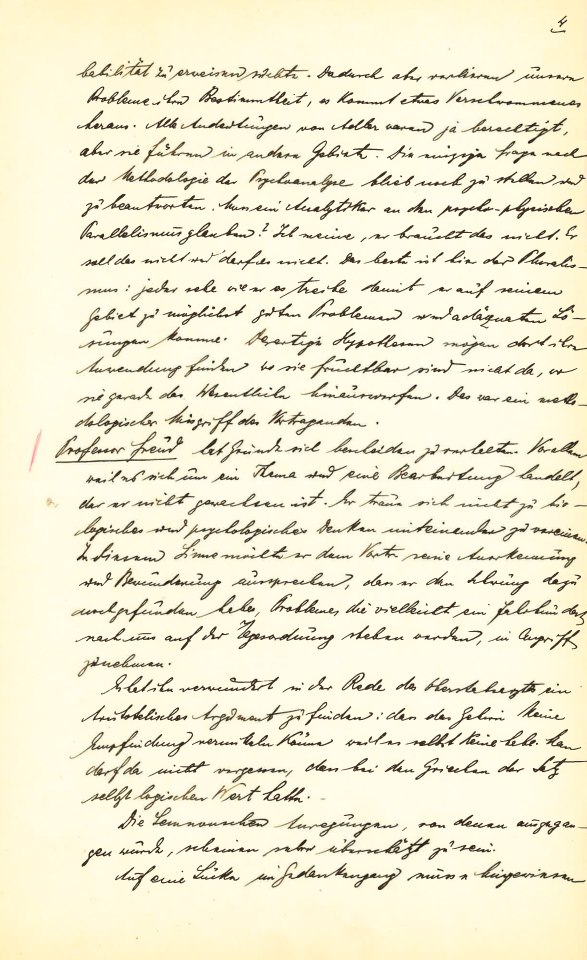 4
babilität zu erweisen suchte. Dadurch aber verlieren unsere
Probleme ihre Bestimmtheit, es kommt etwas Verschwommenes
heraus. Alle Andeutungen von Adler waren ja berechtigt,
aber sie führen in andere Gebiete. Die einzige Frage nach
der Methodologie der Psychoanalyse blieb noch zu stellen und
zu beantworten. Muss ein Analytiker an den psycho-physischen
Parallelismus glauben? Ich meine, er braucht das nicht. Er
soll das nicht und darf es nicht. Das beste ist hier der Pluralis-
mus: jeder sehe wie er es treibe damit er auf seinem
Gebiet zu möglichst guten Problemen und adäquaten Lö-
sungen komme. Derartige Hypothesen mögen dort ihre
Anwendung finden wo sie fruchtbar sind nicht da, wo
sie gerade das Wesentliche hinauswerfen. Das war ein metho-
dologischer Missgriff des Vortragenden.
Professor Freud hat Gründe sich bescheiden zu verhalten. Vor allem
weil es sich um ein Thema und eine Bearbeitung handelt,
der er nicht gewachsen ist. Er traue sich nicht zu bio-
logisches und psychologisches Denken miteinander zu vereinen.
In diesem Sinne möchte er dem Vortr. seine Anerkennung
und Bewunderung aussprechen, dass er den Schwung dazu
noch gefunden habe, Probleme, die vielleicht ein Jahrhundert
nach uns auf der Tagesordnung stehen werden, in Angriff
zu nehmen.
Es hat ihn verwundert in der Rede des Oberstabsarztes ein
Aristotelisches Argument zu finden: dass das Gehirn keine
Empfindung vermitteln könne weil es selbst keine habe. Man
darf da nicht vergessen, dass bei den Griechen der Satz
selbst logischen Wert hatte.
Die Semonschen Anregungen, von denen ausgegan-
gen wurde, scheinen sehr überschätzt zu sein.
Auf eine Lücke im Gedankengang müsse hingewiesen